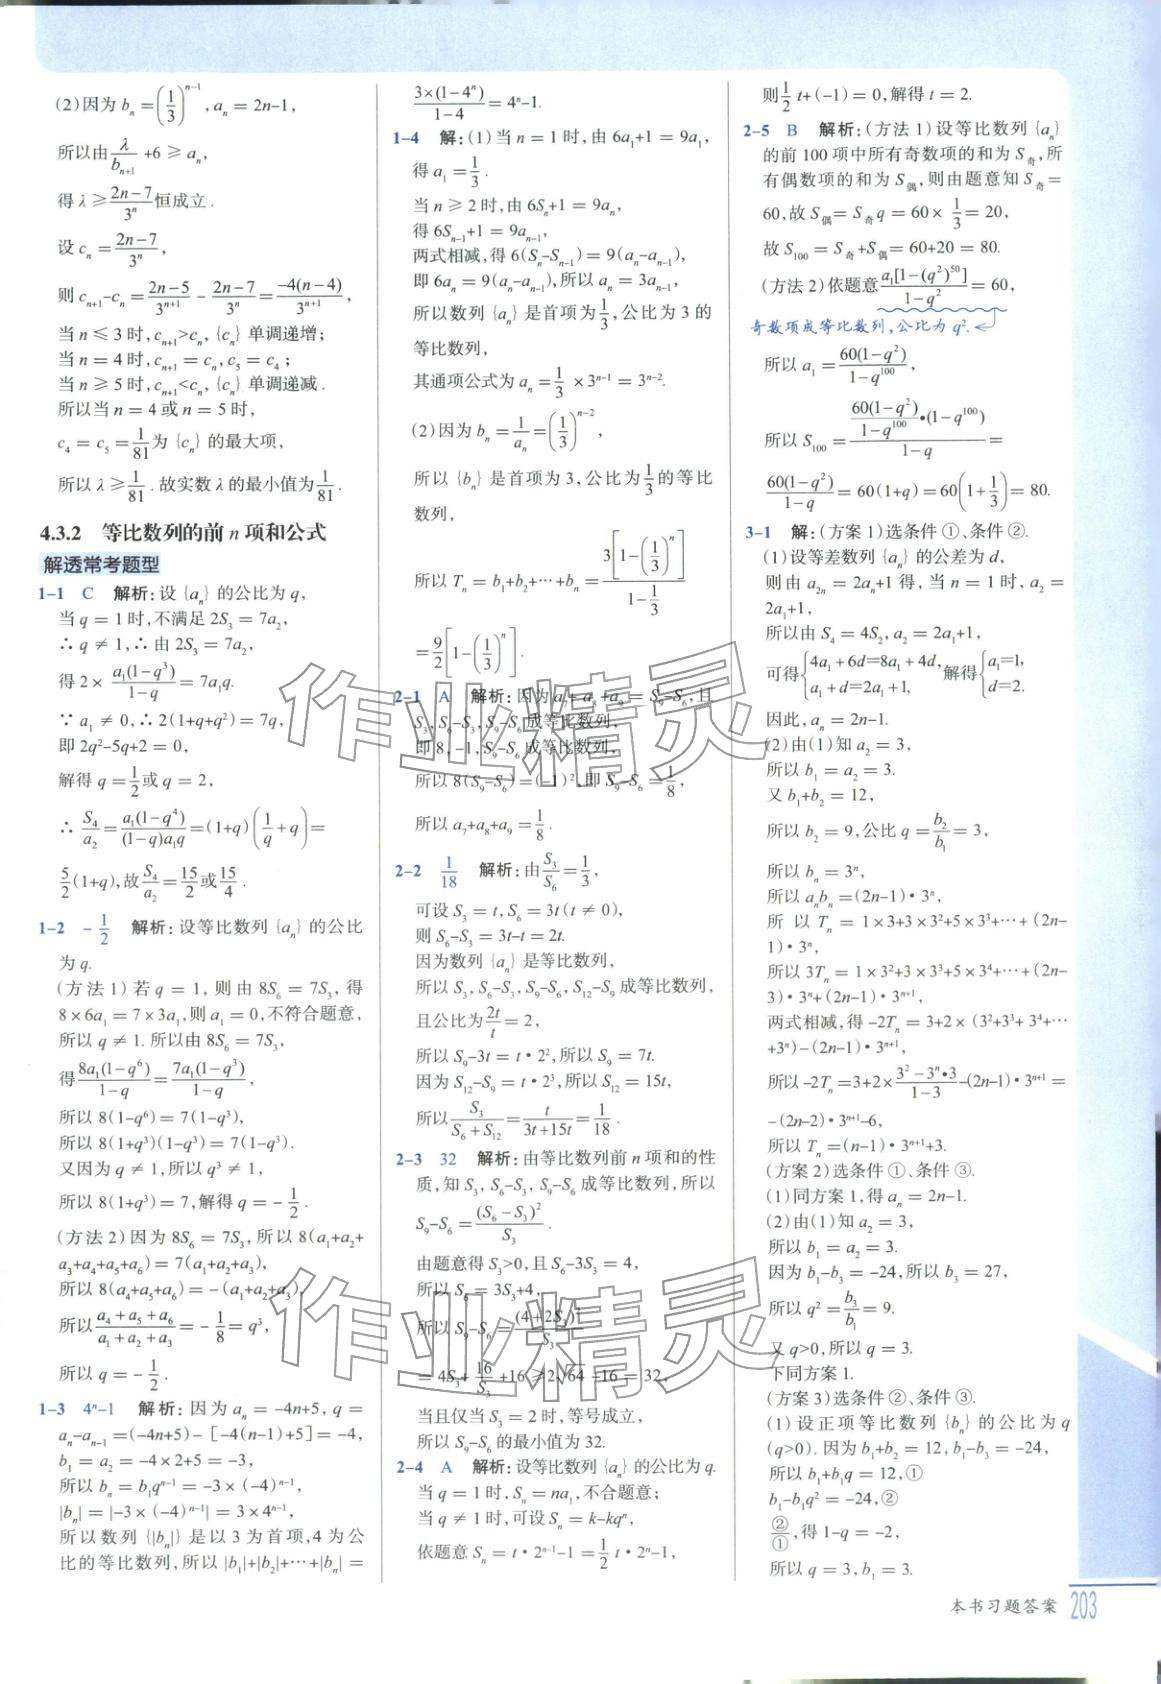 (2)因为 bₙ=(1/3)ⁿ⁻¹, aₙ= 2n-1,
所以由λ/bₙ₊₁+6 ⩾ aₙ,
得 λ⩾(2n-7)/3ⁿ恒成立.
设 cₙ=(2n-7)/3ⁿ,
则 cₙ₊₁-cₙ=(2n-5)/3ⁿ⁺¹-(2n-7)/3ⁿ=-4(n-4)/3ⁿ⁺¹,
当 n ⩽ 3 时, cₙ₊₁>cₙ, {cₙ} 单调递增;
当 n = 4 时, cₙ₊₁ = cₙ, c₅ = c₄;
当 n ⩾ 5 时, cₙ₊₁<cₙ, {cₙ} 单调递减.
所以当 n = 4 或 n = 5 时,
c₄ = c₅ =1/81为 {cₙ} 的最大项,
所以 λ⩾1/81.故实数 λ 的最小值为1/81.
4.3.2 等比数列的前 n 项和公式
解透常考题型
1-1 C 解析:设 {aₙ} 的公比为 q,
当 q = 1 时,不满足 2S₃ = 7a₂,
∴ q ≠ 1,∴ 由 2S₃ = 7a₂,
得 2× a₁(1-q³)/(1-q)= 7a₁q.
∵ a₁ ≠ 0,∴ 2(1+q+q²)= 7q,
即 2q²-5q+2 = 0,
解得 q =1/2或 q = 2,
∴ S₄/a₂=a₁(1-q⁴)/((1-q)a₁q)=(1+q)(1/q+q)=
5/2(1+q),故S₄/a₂=15/2或15/4.
1-2 -1/2 解析:设等比数列 {aₙ} 的公比
为 q.
(方法 1) 若 q = 1, 则由 8S₆ = 7S₃, 得
8×6a₁ = 7×3a₁,则 a₁ = 0,不符合题意,
所以 q ≠ 1. 所以由 8S₆ = 7S₃,
得8a₁(1-q⁶)/(1-q)=7a₁(1-q³)/(1-q),
所以 8(1-q⁶)= 7(1-q³),
所以 8(1+q³)(1-q³)= 7(1-q³).
又因为 q ≠ 1,所以 q³ ≠ 1,
所以 8(1+q³)= 7,解得 q = -1/2.
(方法 2)因为 8S₆ = 7S₃,所以 8(a₁+a₂+
a₃+a₄+a₅+a₆)= 7(a₁+a₂+a₃),
所以 8(a₄+a₅+a₆)= -(a₁+a₂+a₃),
所以(a₄+a₅+a₆)/(a₁+a₂+a₃)= -1/8= q³,
所以 q = -1/2.
1-3 4ⁿ-1 解析:因为 aₙ = -4n+5, q =
aₙ-aₙ₋₁=(-4n+5)-[-4(n-1)+5]= -4,
b₁ = a₂ = -4×2+5 = -3,
所以 bₙ = b₁qⁿ⁻¹ = -3×(-4)ⁿ⁻¹,
|bₙ| = |-3×(-4)ⁿ⁻¹| = 3×4ⁿ⁻¹,
所以数列 {|bₙ|} 是以 3 为首项,4 为公
比的等比数列,所以 |b₁|+|b₂|+⋯+|bₙ| =
3×(1-4ⁿ)/(1-4)= 4ⁿ-1.
1-4 解:(1)当 n = 1 时,由 6a₁+1 = 9a₁,
得 a₁ =1/3.
当 n ⩾ 2 时,由 6Sₙ+1 = 9aₙ,
得 6Sₙ₋₁+1 = 9aₙ₋₁,
两式相减,得 6(Sₙ-Sₙ₋₁)= 9(aₙ-aₙ₋₁),
即 6aₙ = 9(aₙ-aₙ₋₁),所以 aₙ = 3aₙ₋₁,
所以数列 {aₙ} 是首项为1/3,公比为 3 的
等比数列,
其通项公式为 aₙ =1/3×3ⁿ⁻¹ = 3ⁿ⁻².
(2)因为 bₙ =1/aₙ=(1/3)ⁿ⁻²,
所以 {bₙ} 是首项为 3,公比为1/3的等比
数列,
所以 Tₙ = b₁+b₂+⋯+bₙ =3[1-(1/3)ⁿ]/(1-1/3)
=9/2[1-(1/3)ⁿ].
2-1 A 解析:因为 a₇+a₈+a₉ = S₉-S₆,且
S₃, S₆-S₃, S₉-S₆ 成等比数列,
即 8,-1, S₉-S₆ 成等比数列,
所以 8(S₉-S₆)=(-1)²,即 S₉-S₆ =1/8,
所以 a₇+a₈+a₉ =1/8.
2-2 1/18 解析:由S₃/S₆=1/3,
可设 S₃ = t, S₆ = 3t(t ≠ 0),
则 S₆-S₃ = 3t-t = 2t.
因为数列 {aₙ} 是等比数列,
所以 S₃, S₆-S₃, S₉-S₆, S₁₂-S₉ 成等比数列,
且公比为2t/t= 2,
所以 S₉-3t = t·2²,所以 S₉ = 7t.
因为 S₁₂-S₉ = t·2³,所以 S₁₂ = 15t,
所以S₃/(S₆+S₁₂)=t/(3t+15t)=1/18.
2-3 32 解析:由等比数列前 n 项和的性
质,知 S₃, S₆-S₃, S₉-S₆ 成等比数列,所以
S₉-S₆ =(S₆-S₃)²/S₃.
由题意得 S₃>0,且 S₆-3S₃ = 4,
所以 S₆ = 3S₃+4,
所以 S₉-S₆ =(4+2S₃)²/S₃
= 4S₃+16/S₃+16 ⩾2√64+16 = 32,
当且仅当 S₃ = 2 时,等号成立,
所以 S₉-S₆ 的最小值为 32.
2-4 A 解析:设等比数列 {aₙ} 的公比为 q.
当 q = 1 时, Sₙ = na₁,不合题意;
当 q ≠ 1 时,可设 Sₙ = k-kqⁿ,
依题意 Sₙ = t·2ⁿ⁻¹-1 =1/2 t·2ⁿ-1,
则1/2 t+(-1)= 0,解得 t = 2.
2-5 B 解析:(方法 1)设等比数列 {aₙ}
的前 100 项中所有奇数项的和为 S奇,所
有偶数项的和为 S偶,则由题意知 S奇=
60,故 S偶= S奇q = 60×1/3= 20,
故 S₁₀₀ = S奇+S偶= 60+20 = 80.
(方法 2)依题意a₁[1-(q²)⁵⁰]/(1-q²)= 60,
奇数项成等比数列,公比为 q².
所以 a₁ =60(1-q²)/(1-q¹⁰⁰),
所以 S₁₀₀ =(60(1-q²)/(1-q¹⁰⁰)·(1-q¹⁰⁰))/(1-q)=
60(1-q²)/(1-q)= 60(1+q)= 60(1+1/3)= 80.
3-1 解:(方案 1)选条件 ①、条件 ②.
(1)设等差数列 {aₙ} 的公差为 d,
则由 a₂ₙ = 2aₙ+1 得,当 n = 1 时, a₂ =
2a₁+1,
所以由 S₄ = 4S₂, a₂ = 2a₁+1,
可得{4a₁+6d=8a₁+4d, a₁+d=2a₁+1,解得{a₁=1, d=2.
因此, aₙ = 2n-1.
(2)由(1)知 a₂ = 3,
所以 b₁ = a₂ = 3.
又 b₁+b₂ = 12,
所以 b₂ = 9,公比 q =b₂/b₁= 3,
所以 bₙ = 3ⁿ,
所以 aₙbₙ =(2n-1)·3ⁿ,
所 以 Tₙ = 1×3+3×3²+5×3³+⋯+(2n-
1)·3ⁿ,
所以 3Tₙ = 1×3²+3×3³+5×3⁴+⋯+(2n-
3)·3ⁿ+(2n-1)·3ⁿ⁺¹,
两式相减,得 -2Tₙ = 3+2×(3²+3³+3⁴+⋯
+3ⁿ)-(2n-1)·3ⁿ⁺¹,
所以 -2Tₙ =3+2×(3²-3ⁿ·3)/(1-3)-(2n-1)·3ⁿ⁺¹ =
-(2n-2)·3ⁿ⁺¹-6,
所以 Tₙ =(n-1)·3ⁿ⁺¹+3.
(方案 2)选条件 ①、条件 ③.
(1)同方案 1,得 aₙ = 2n-1.
(2)由(1)知 a₂ = 3,
所以 b₁ = a₂ = 3.
因为 b₁-b₃ = -24,所以 b₃ = 27,
所以 q² =b₃/b₁= 9.
又 q>0,所以 q = 3.
下同方案 1.
(方案 3)选条件 ②、条件 ③.
(1) 设正项等比数列 {bₙ} 的公比为 q
(q>0). 因为 b₁+b₂ = 12, b₁-b₃ = -24,
所以 b₁+b₁q = 12,①
b₁-b₁q² = -24,②
②/①,得 1-q = -2,
所以 q = 3, b₁ = 3.
本书习题答案 203
作业精灵
作业精灵